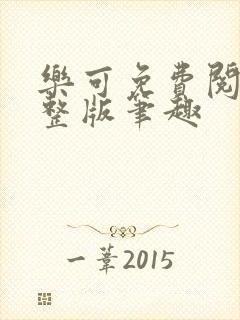 樂可免費閱
整版筆趣
一葦2015